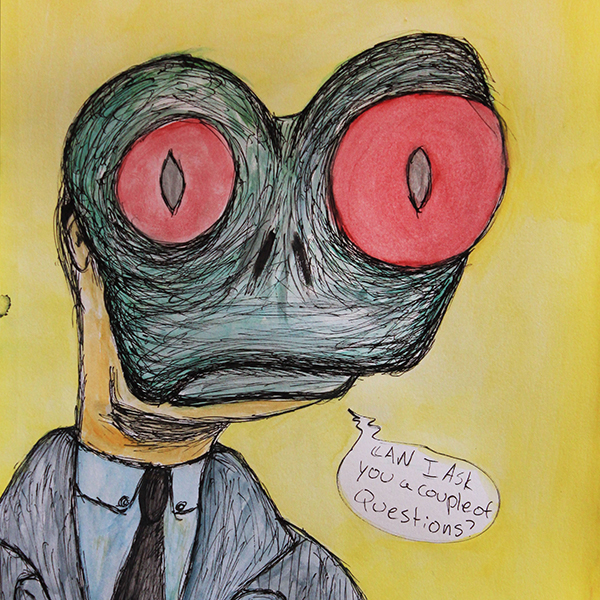 CAN I ASk
you a couple of
Questions?